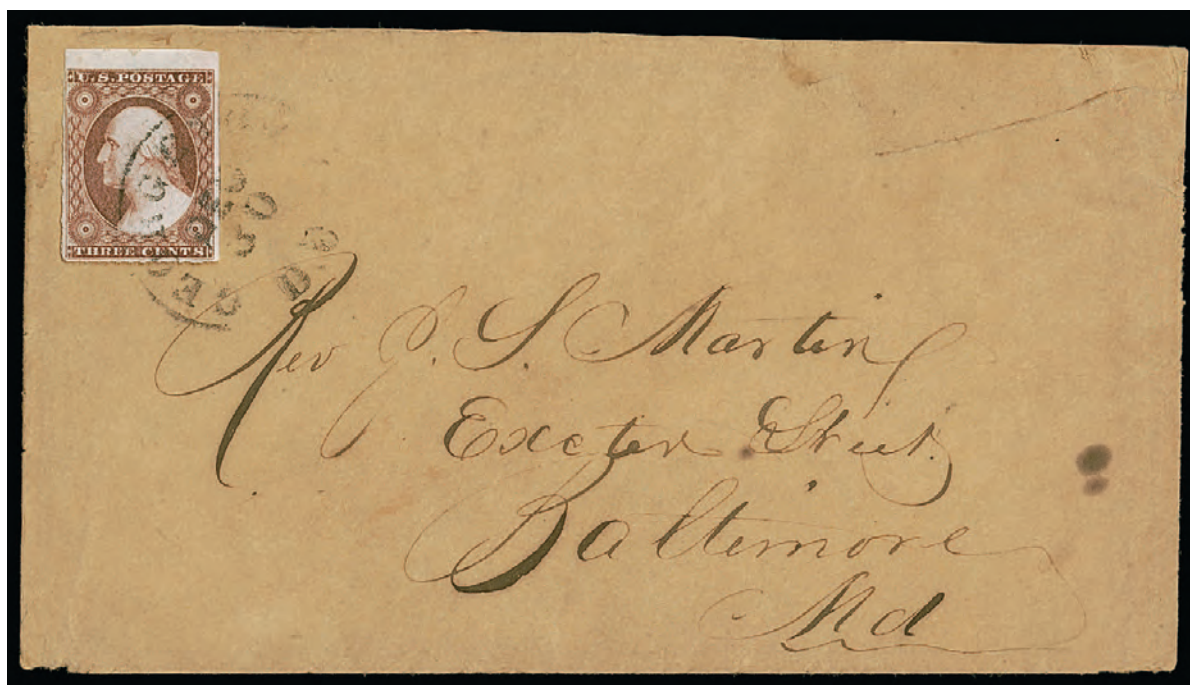 U.S. POSTAGE
THREE CENTS
D.C.
Rev J. S. Martin
Exeter Street.
Baltimore
Md